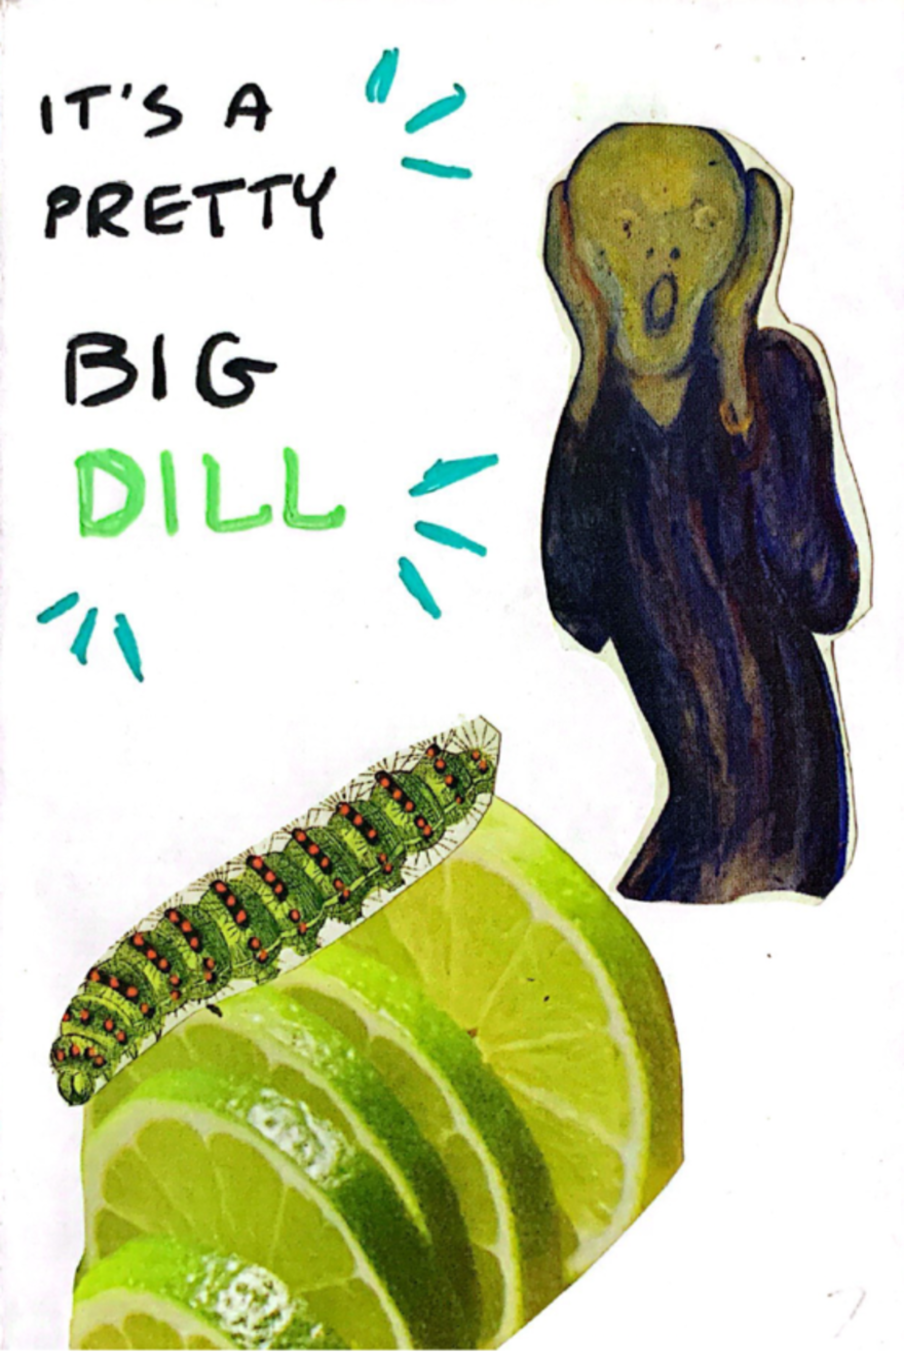 IT'S A
PRETTY
BIG
DILL